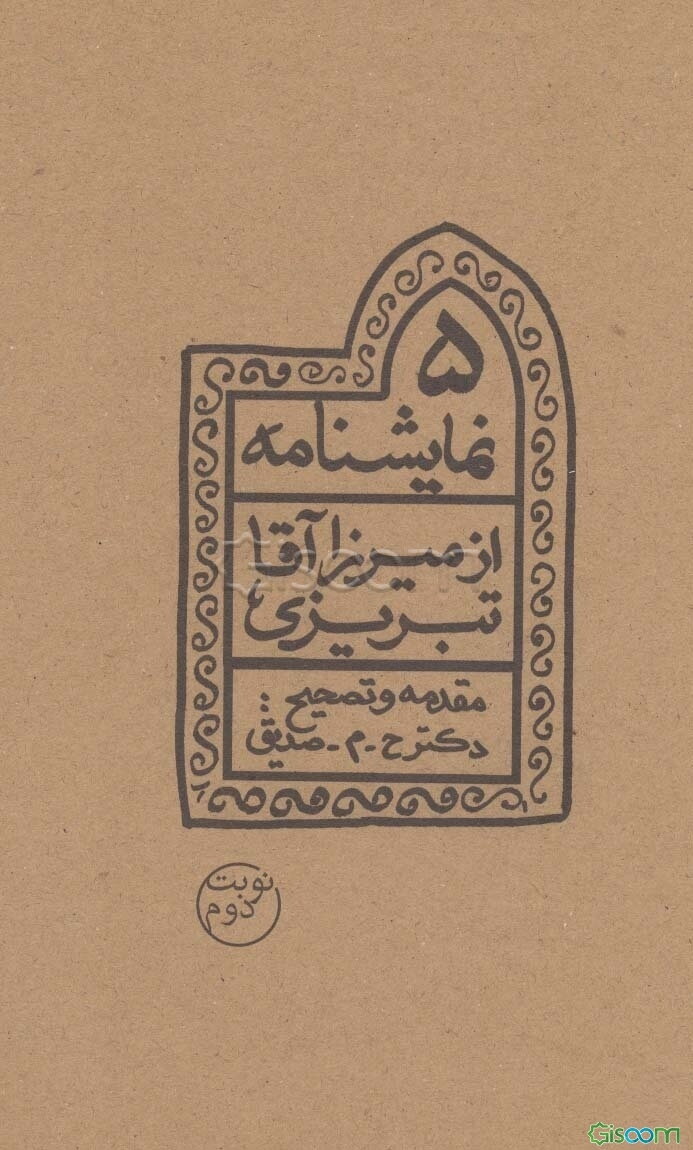 ۵
نمایشنامه
از میرزا آقا
تبریزی
مقدمه و تصحیح:
دکتر ح - م - صدیق
نوبت
دوم
Gisoom
Gisoom